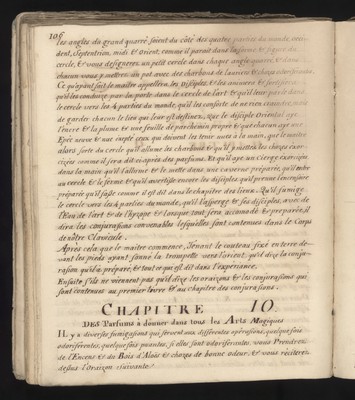 106
les angles du grand quarré soient du côté des quatre parties du monde, occi-
dent, Septentrion, midi & Orient, comme il parait dans la forme & figure du
cercle, & vous designerez un petit cercle dans chaque angle quarré, & dans
chacun vous y mettrez un pot avec des charbons de lauriers & chose odoriferantes.
Ce qu'ayant fait le maitre appellera les Disciples, & les
qu'il les conduise par la porte dans le cercle de l'art & qu'il leur parle dans
le cercle vers les 4 parties du monde, qu'il les conforte de ne rien craindre, mais
de garder chacun le lieu qui leur est destiné. Que le disciple Oriental aye
l'encre & la plume & une feuille de parchemin propre & que chacun aye une
Epée neuve & nue excepté ceux qui doivent les tenir nuës à la main, que le maître
alors sorte du cercle qu'il allume les charbons & qu'il y mette les choses exor-
cizées comme il sera dit ci après des parfums. Et qu'il aye un Cierge exorcizé
dans la main qu'il l'allume & le mette dans une caverne preparée, qu'il entre
au cercle & le ferme & qu'il avertisse encore les disciples, qu'il prenne l'encensoir
préparé qu'il fasse comme il est dit dans le chapitre des lieux. Qu'il fumige
le cercle vers les 4 parties du monde, qu'il l'asperge & ses disciples, avec de
l'Eau de l'art & de l'hysope & lorsque tout sera accomodé & préparé, il
dira les conjurations convenables lesquelles sont contenues dans le Corps
de nôtre Clavicule.
Après cela que le maitre commence, Tenant le couteau fixé en terre de-
vant les pieds ayant sonné la trompette vers l'orient: qu'il dize la conju-
ration qu'il a preparé, & tout ce qui est dit dans l'experiance.
Ensuite s'ils ne viennent pas qu'il dize les oraizons & les conjurations qui
sont contenues au premier livre & au chapitre des conjurations.
CHAPITRE 10.
DES Parfums à donner dans tous les Arts Magiques
IL y a diverses fumigations qui servent aux differentes opérations, quelque fois
odoriferentes, quelque fois puantes, si elles sont odoriferantes. vous Prendrez
de l'Encens & du Bois d'Aloës & choze de bonne odeur, & vous réciterez
dessus l'oraizon suivante